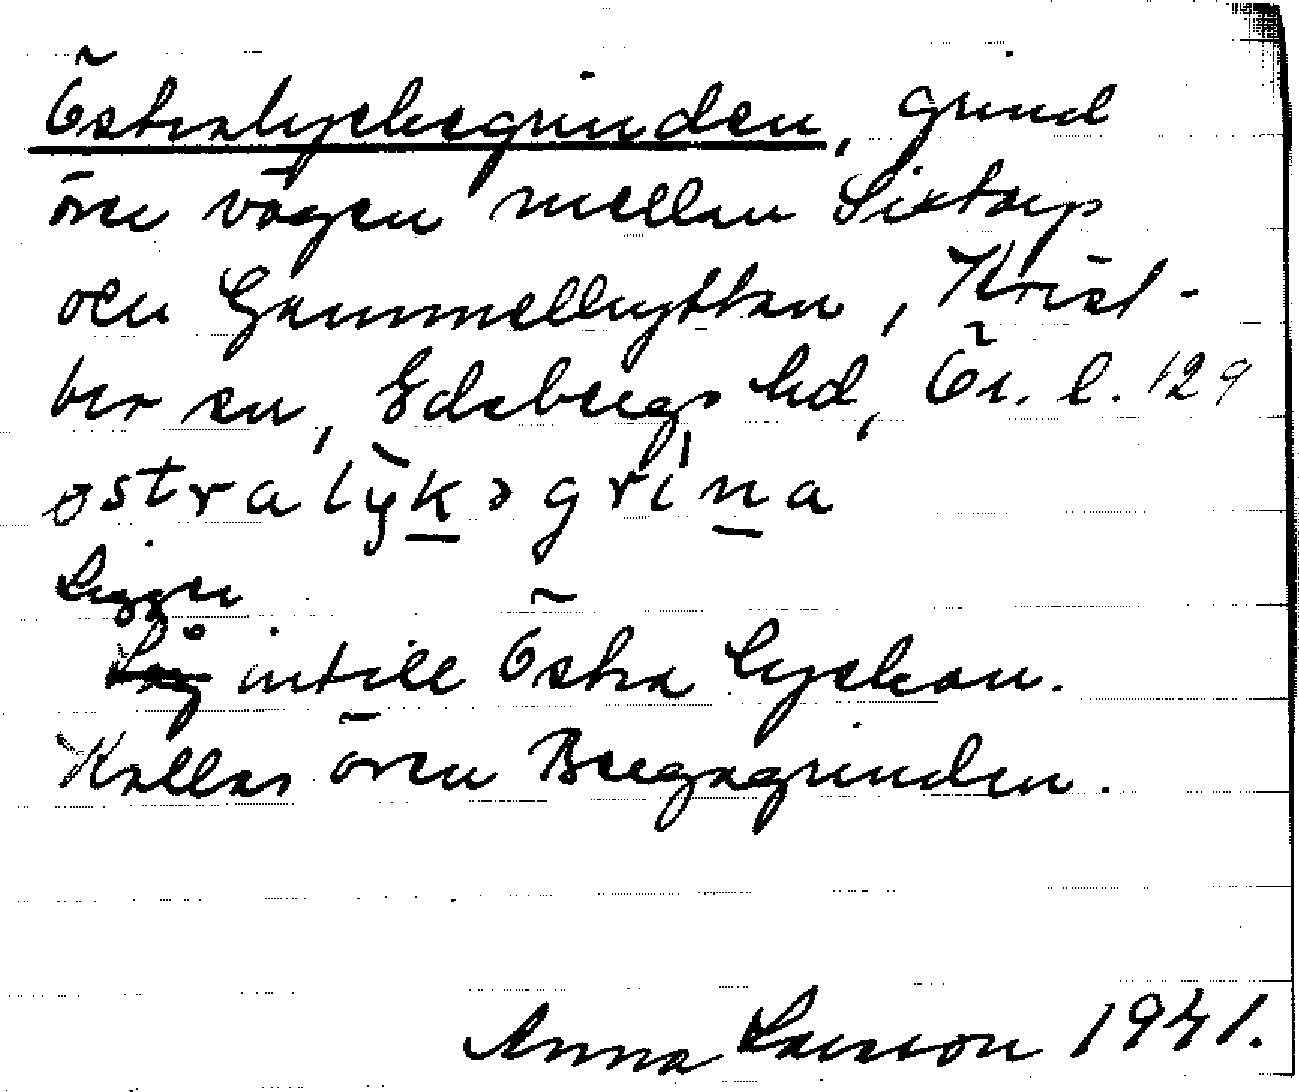 Östralyckegrinden, grind
över vägen mellan Sixtorp
och Gammelhyttan, Krist-
bersn, Edsbergs hd, Ör. l. 129
østralỳkəgrìna
Ligger
Låg intill Östra Lyckan.
Kallas även Bergagrinden.
Anna Larsson 1941.